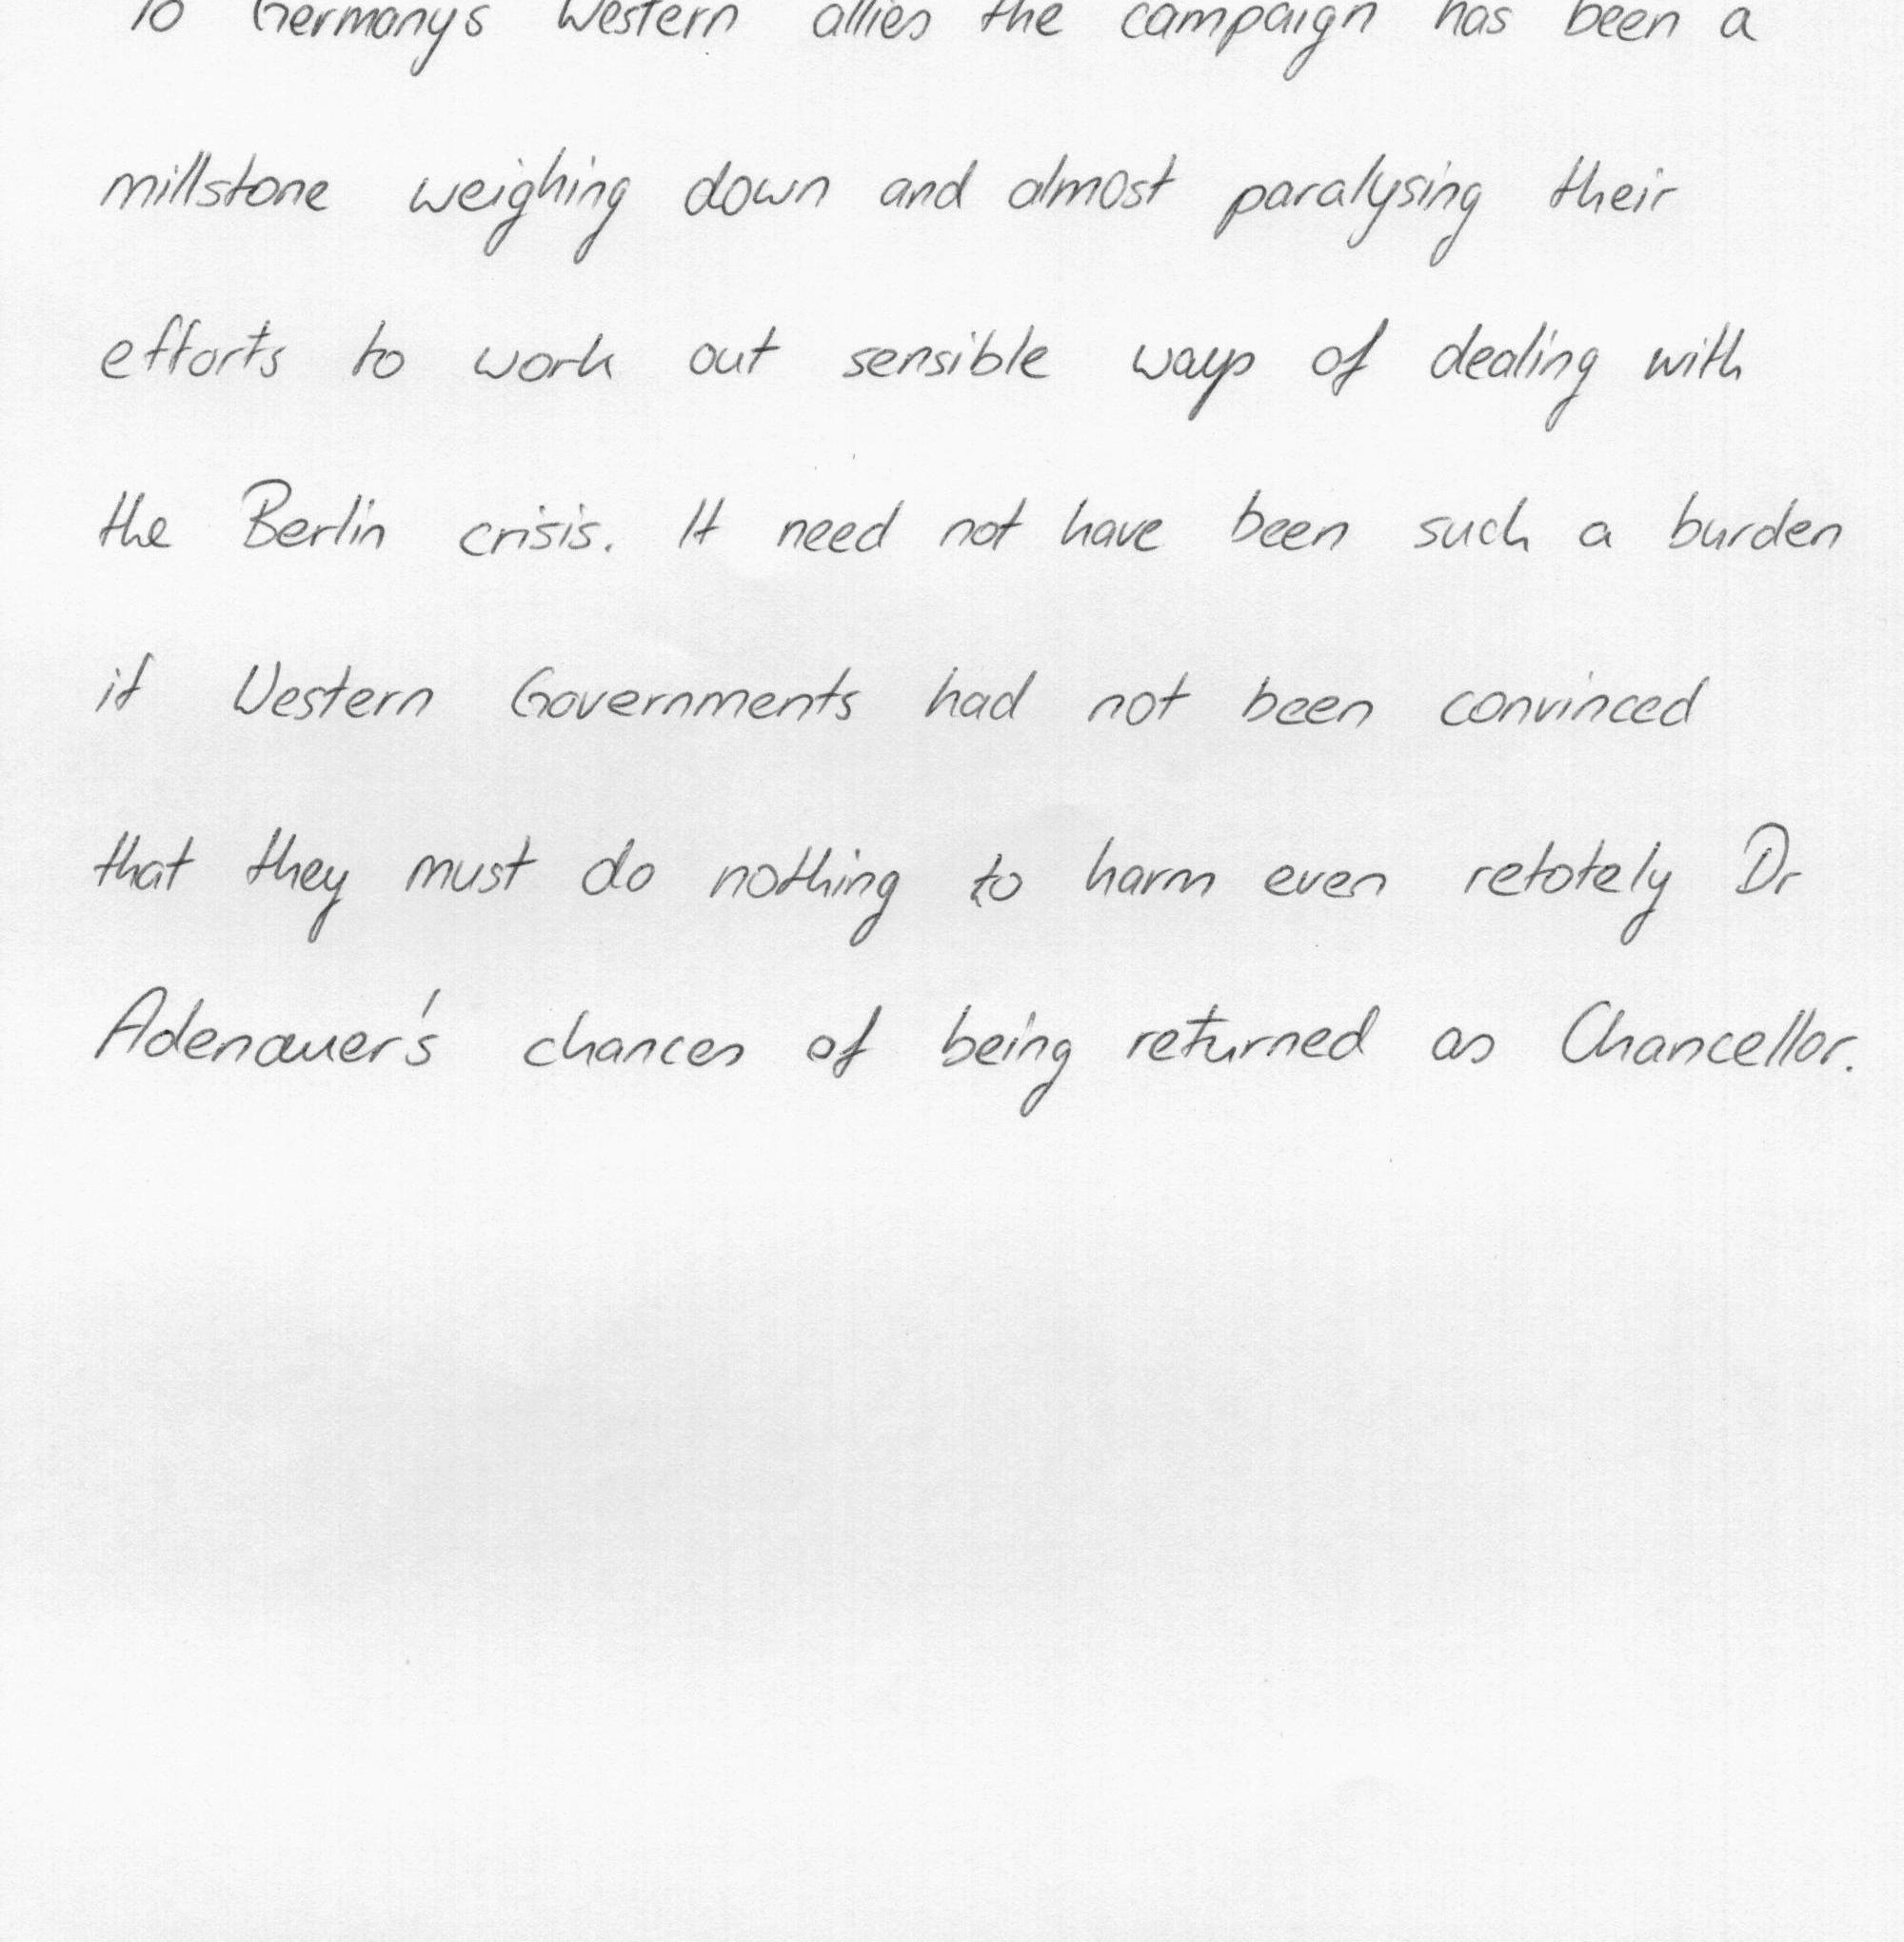 To Germany's Western allies the campaign has been a
millstone weighing down and almost paralysing their
efforts to work out sensible ways of dealing with
the Berlin crisis. It need not have been such a burden
if Western Governments had not been convinced
that they must do nothing to harm even retotely Dr
Adenauer's chances of being returned as Chancellor.